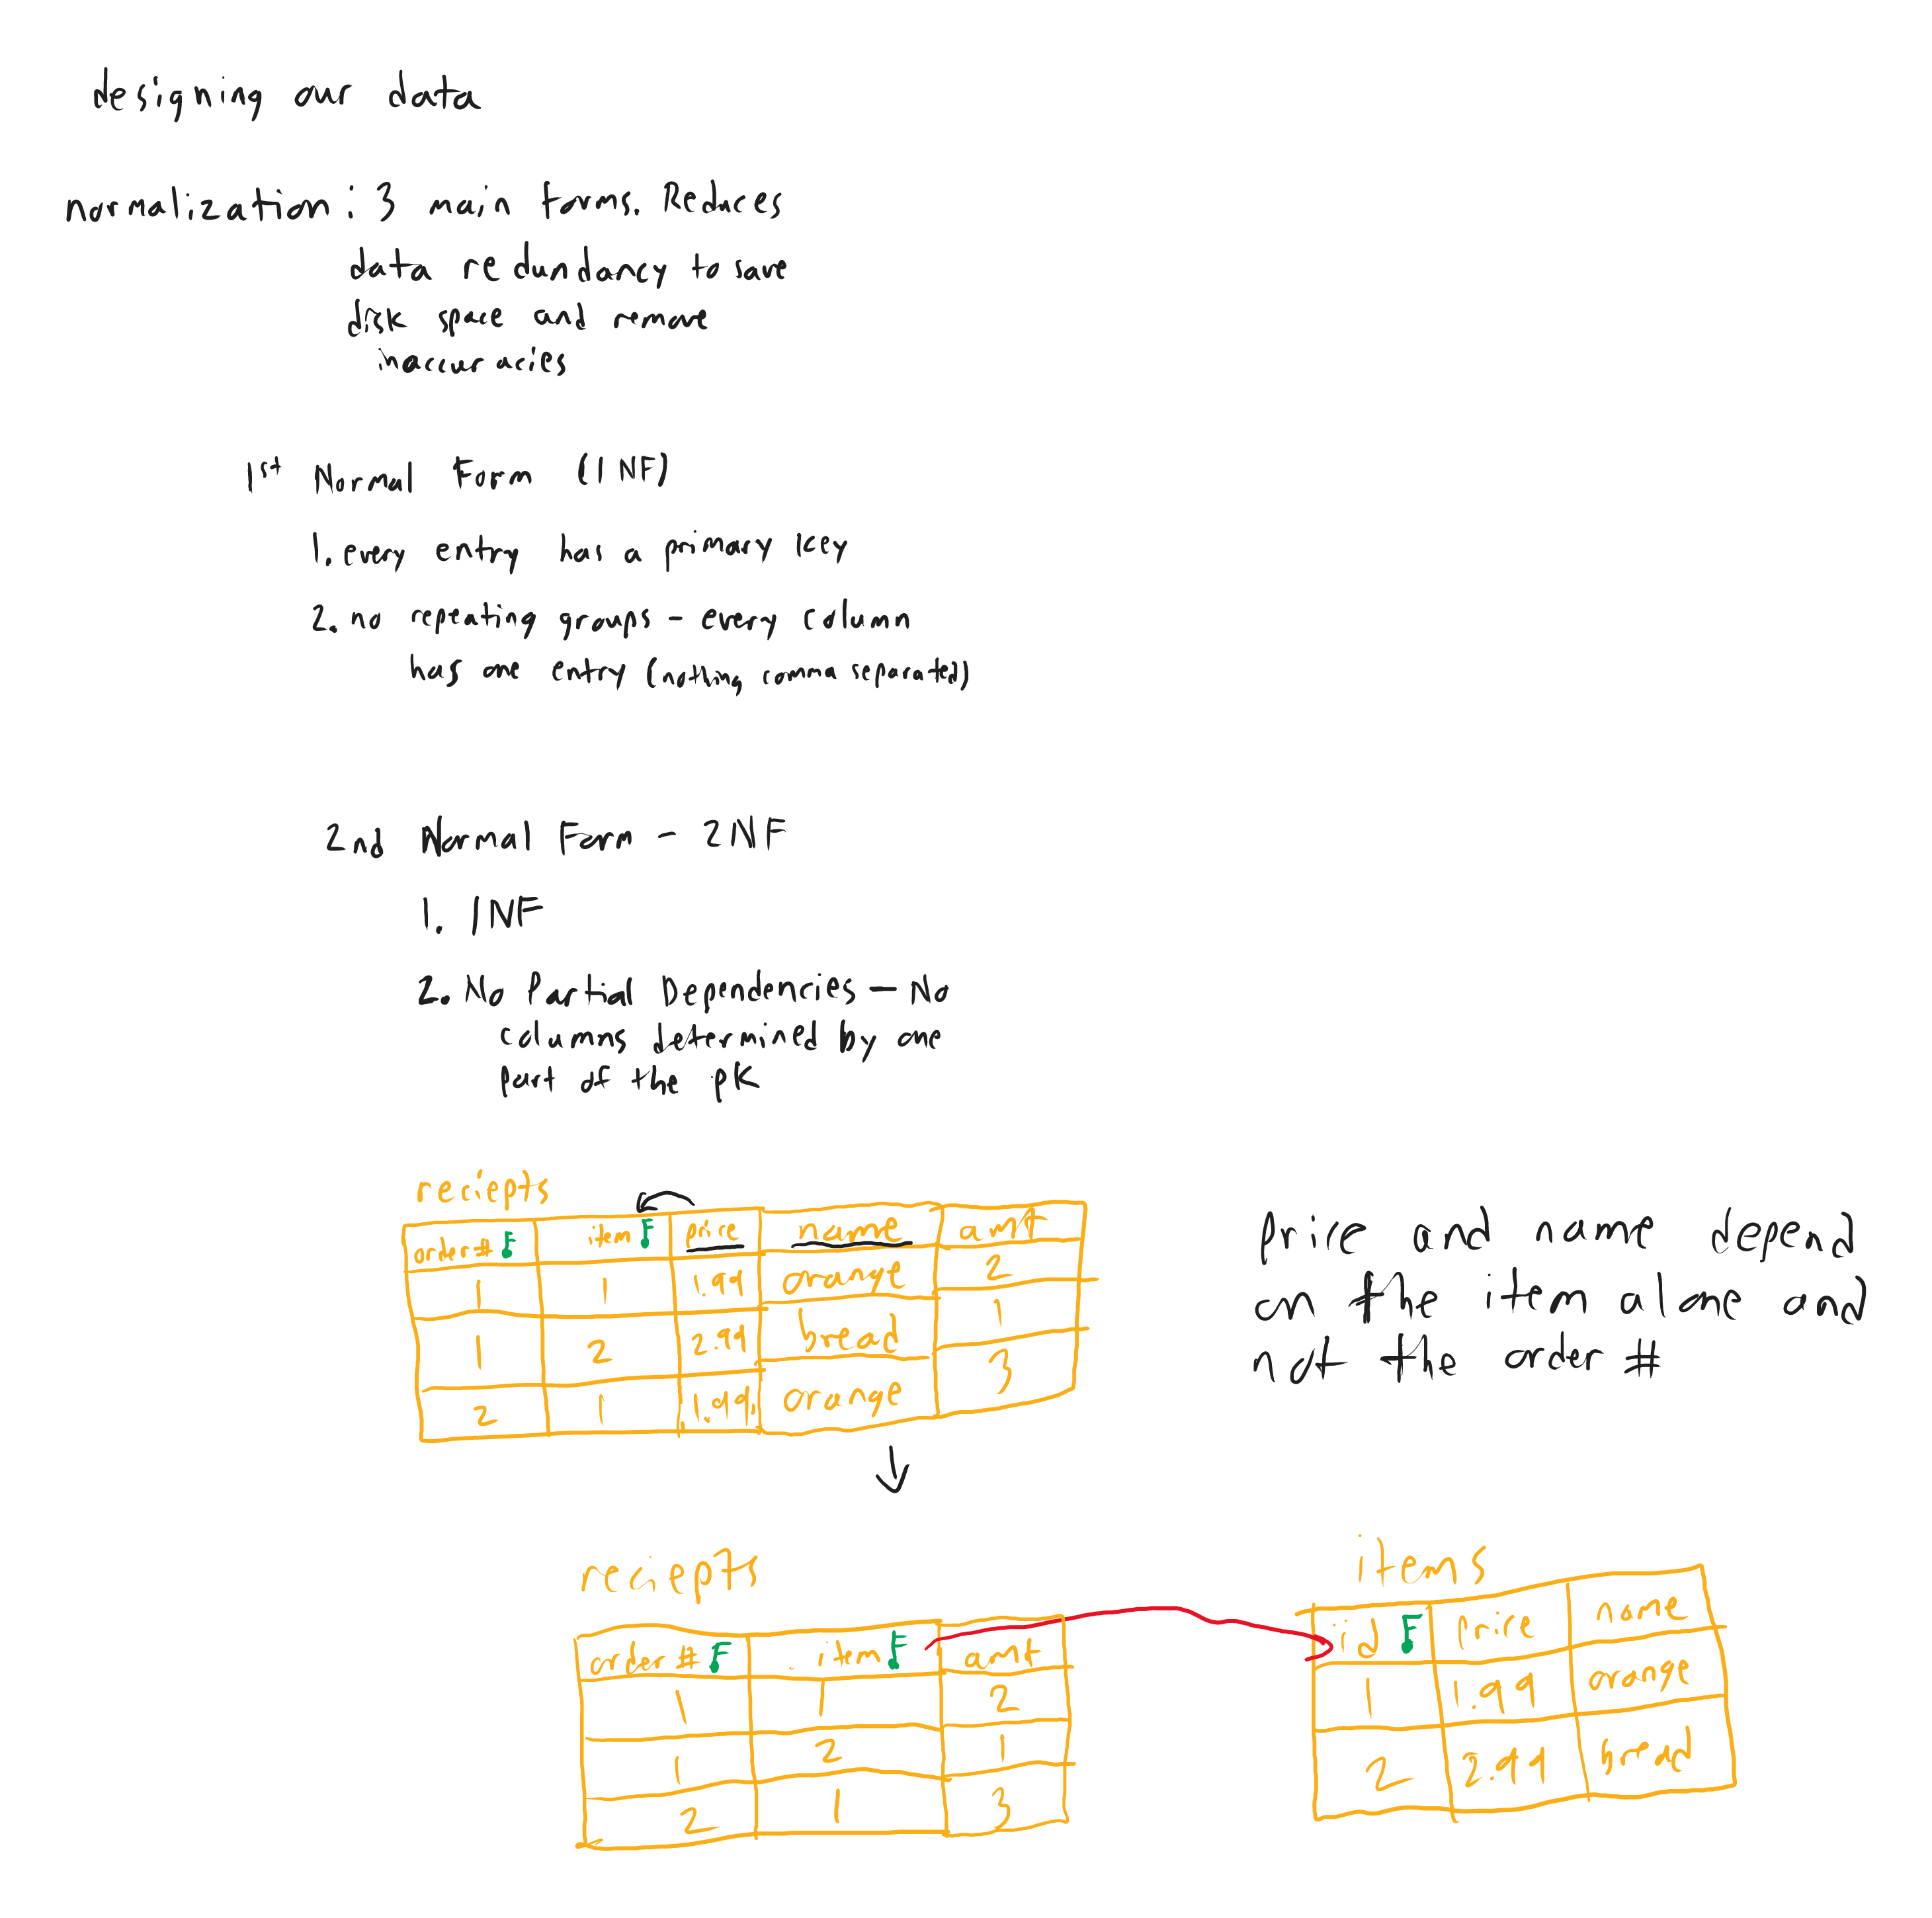 designing our data
normalization: 3 main forms. Reduces
data redundancy to save
disk space and remove
inaccuracies
1st Normal Form (1NF)
1. every entry has a primary key
2. no repeating groups - every column
has one entry (nothing comma separated)
2nd Normal Form - 2NF
1. 1NF
2. No Partial Dependencies - No
columns determined by one
part of the pk
reciepts
order # item price name amt
1 1 1.99 orange 2
1 2 2.99 bread 1
2 1 1.99 orange 3
price and name depend
on the item alone and
not the order #
reciepts
order # item amt
1 1 2
1 2 1
2 1 3
items
id price name
1 1.99 orange
2 2.99 bread